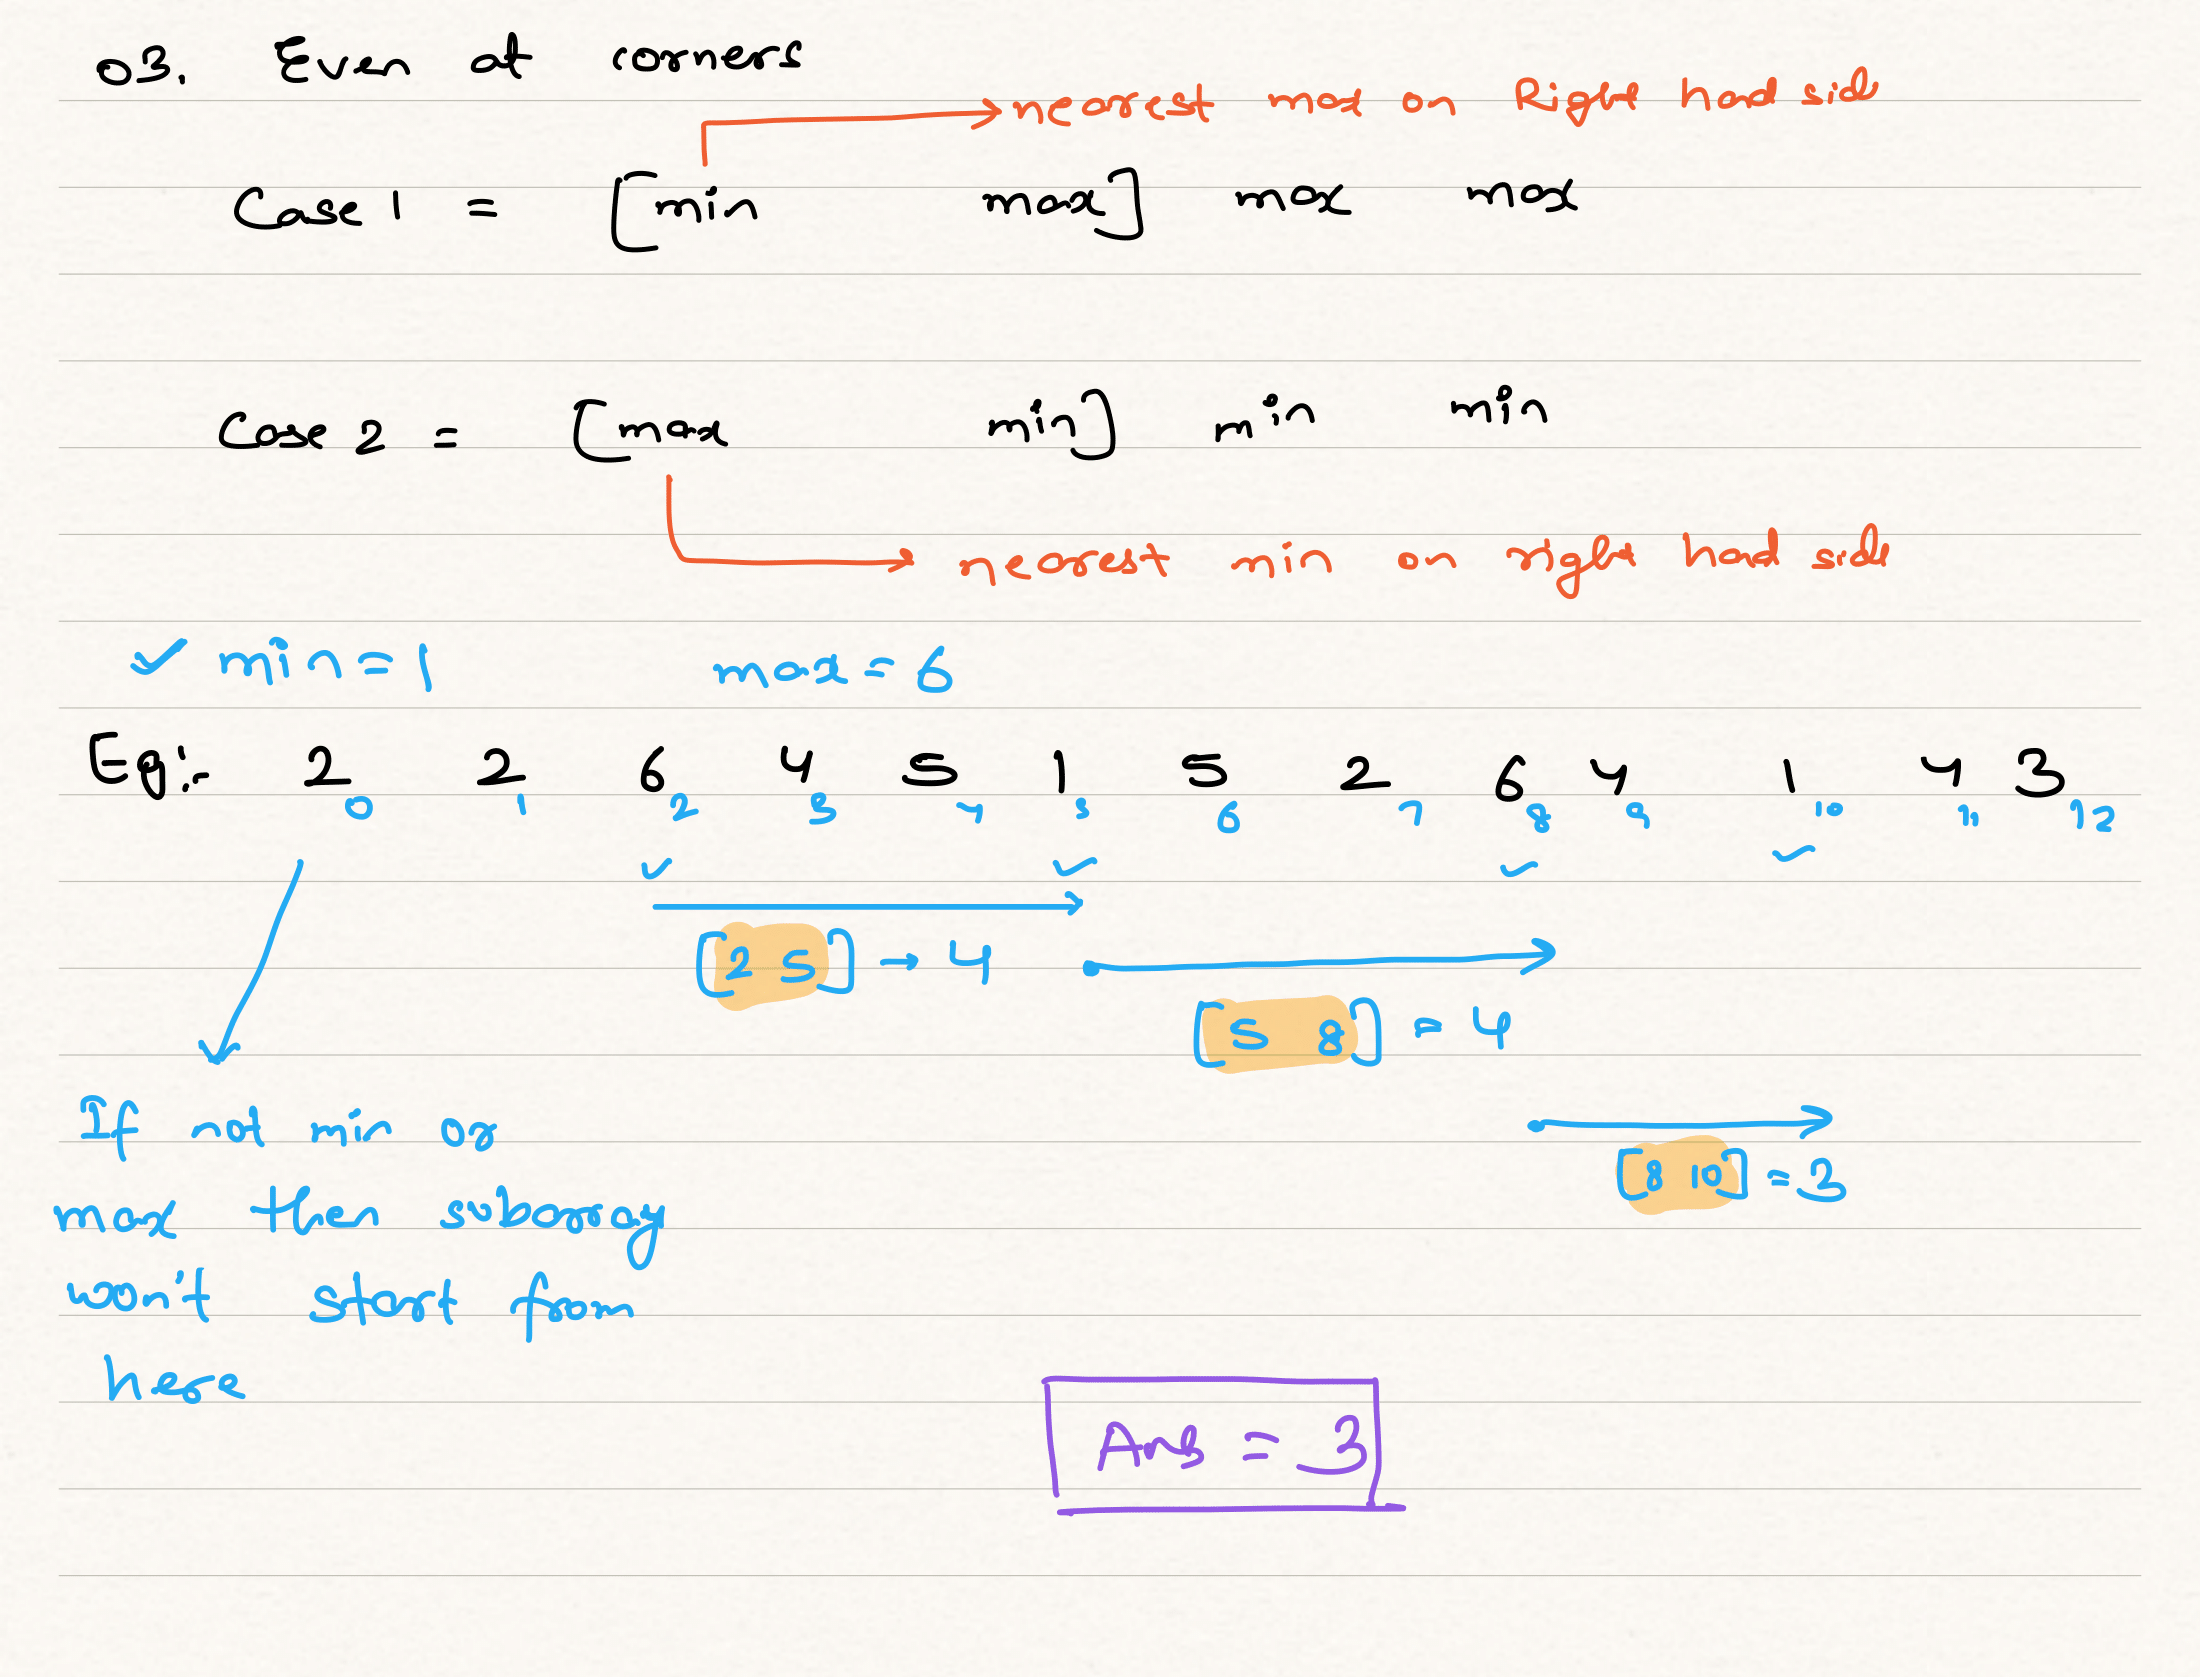 03. Even at corners
nearest max on Right hand side
Case 1 = [min max] max max
Case 2 = [max min] min min
nearest min on right hand side
✓ min = 1 max = 6
Eg:- 2 2 6 4 5 1 5 2 6 4 1 4 3
0 1 2 3 4 5 6 7 8 9 10 11 12
✓ ✓ ✓ ✓
[2 5] → 4
[5 8] = 4
If not min or
[8 10] = 3
max then subarray
won't start from
here
Ans = 3